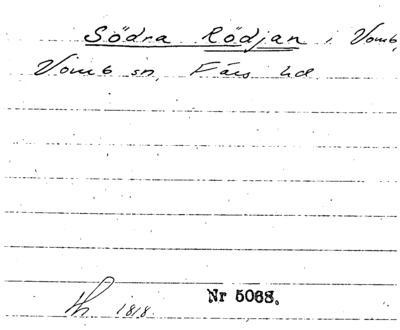 Södra Rödjan i Vomb,
Vomb sn, Färs hd.
1818. Nr 5068.